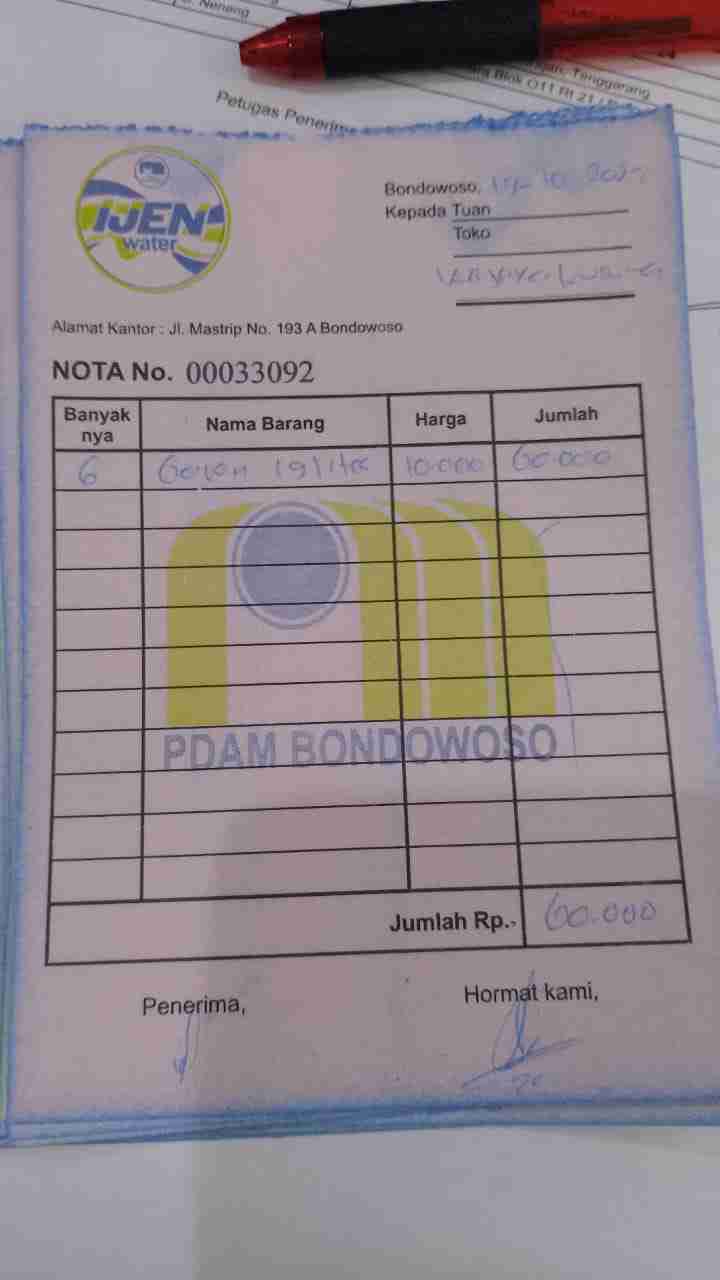 Nenang
Tenggarang
Blok O11 Rt 21
Petugas Penerim
IJEN
water
Bondowoso,
Kepada Tuan
Toko
Alamat Kantor : Jl. Mastrip No. 193 A Bondowoso
NOTA No. 00033092
Banyak nya Nama Barang Harga Jumlah
6 Galon 19 liter 10.000 60.000
PDAM BONDOWOSO
Jumlah Rp.- 60.000
Penerima, Hormat kami,